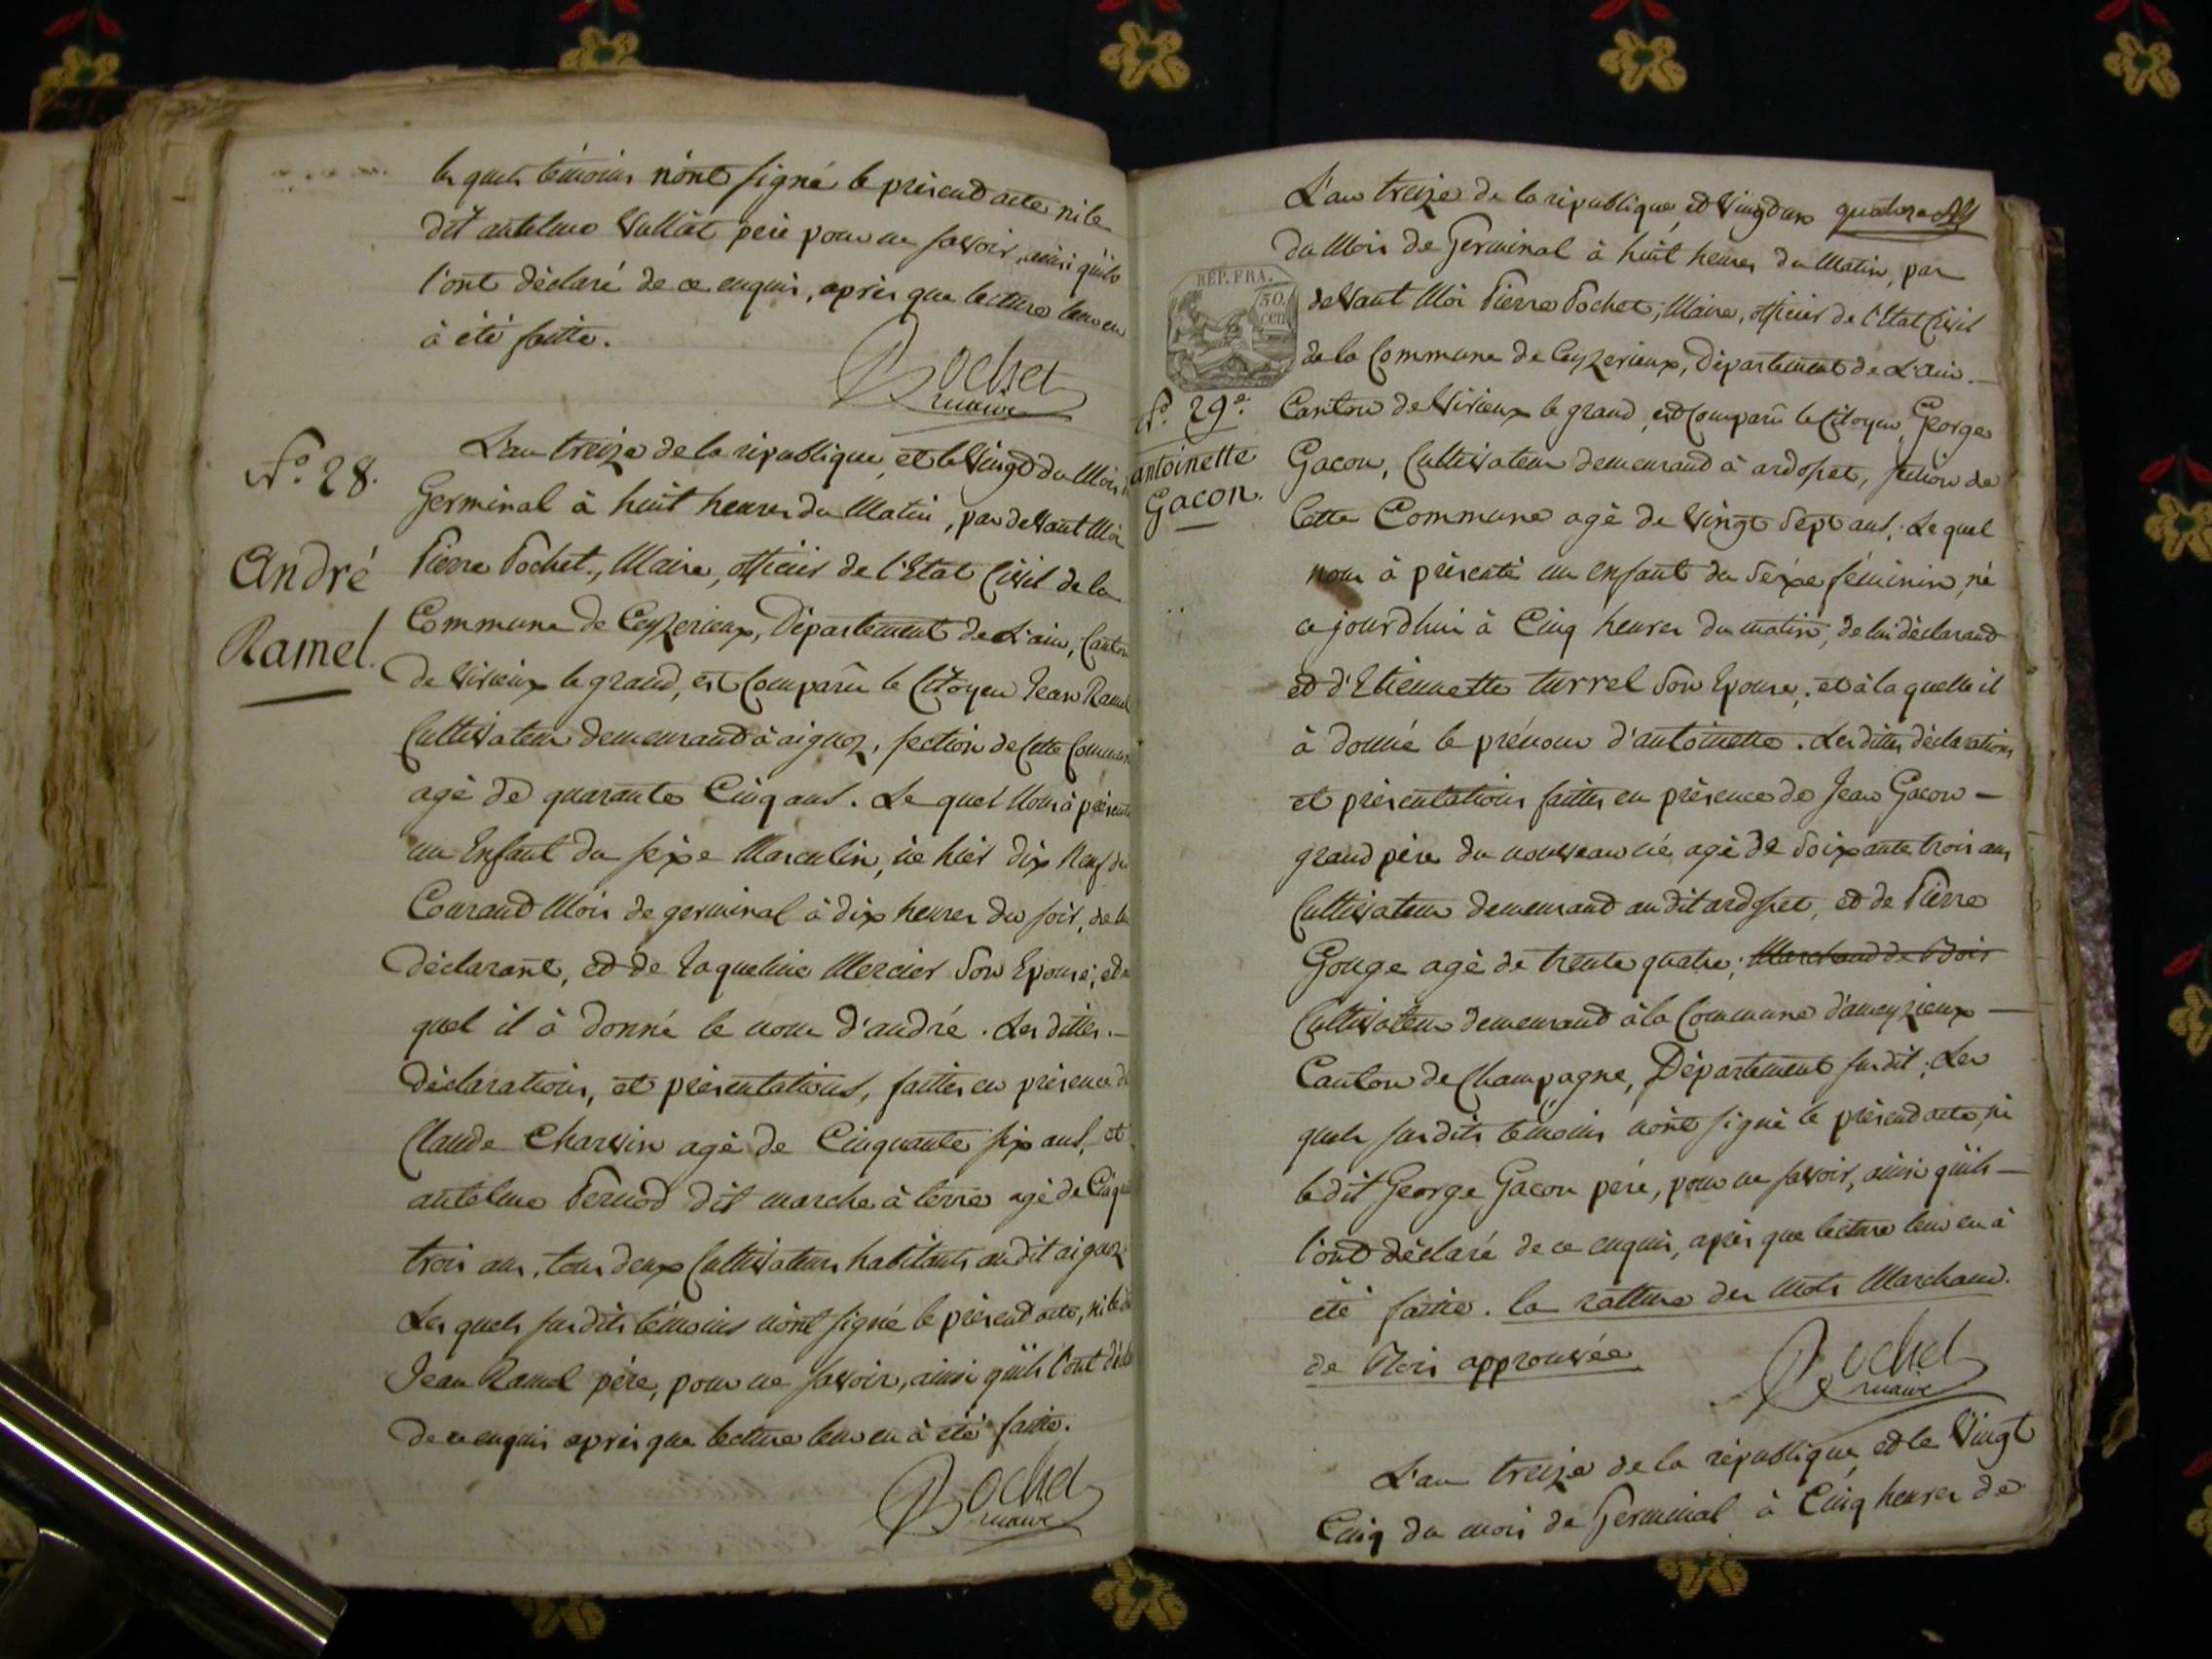 les quels témoins n'ont signé le présend acte ni le
dit antelme Vullat père pour ne savoir, ainsi qu'ils
l'ont déclaré de ce enquis, après que lecture leur en
à été faitte.
Pochet
maire
N.° 28.
André
Ramel.
L'an treize de la république et le Vingt du Mois
Germinal à huit heures du Matin, par devant Moi
Pierre Pochet, Maire, officier de l'Etat Civil de la
Commune de Ceyzerieux, Département de L'ain, Canton
de Virieux le grand, est Comparû le Citoyen Jean Ramel
Cultivateur demeurand à aignoz, section de Cette Commune
agé de quarante Cinq ans. Le quel Nous à présenté
un Enfant du sexe Masculin, né hier dix Neuf du
Courand Mois de germinal à dix heures du soir, de lui
déclarant, et de Jaqueline Mercier son Epouse; et au
quel il à donné le nom d'andré. Les dittes
déclarations, et présentations, faittes en présence de
Claude Charvin agé de Cinquante six ans, et
antelme Pernod dit marche à terre agé de Cinquante
trois ans, tous deux Cultivateurs habitants au dit aignoz
Les quels susdits témoins n'ont signé le présend acte, ni le dit
Jean Ramel père, pour ne savoir, ainsi qu'ils l'ont déclaré
de ce enquis après que lecture leur en à été faitte.
Pochet
maire
L'an treize de la république, et Vingt deux quatorze
du Mois de Germinal à huit heures du Matin, par
REP. FRA.
50.
cen
devant Moi Pierre Pochet, Maire, officier de l'Etat Civil
de la Commune de Ceyzerieux, Département de L'ain
N.° 29e.
antoinette
Gacon.
Canton de Virieux le grand, est Comparû le Citoyen George
Gacon, Cultivateur demeurand à ardosset, section de
Cette Commune agé de Vingt Sept ans, Le quel
nous à présenté un enfant du Sexe féminin, né
ce jourdhui à Cinq heures du matin, de lui déclarand
et d'Etiennette turrel son Epouse; et à la quelle il
à donné le prénom d'antoinette. Les dittes déclarations
et présentations faittes en présence de Jean Gacon
grand père du nouveau né agé de Soixante trois ans
Cultivateur demeurand au dit ardosset, et de Pierre
Gouge agé de trente quatre; Marchand de Bois
Cultivateur demeurand à la Commune d'ameyzieux
Canton de Champagne, Département susdit; Les
quels susdits témoins n'ont signé le présend acte, ni
le dit George Gacon père, pour ne savoir, ainsi qu'ils
l'ont déclaré de ce enquis, après que lecture leur en à
été faitte. la ratture des mots Marchand.
de Bois approuvée
Pochet
maire
L'an treize de la république, et le Vingt
Cinq du mois de Germinal à Cinq heures de